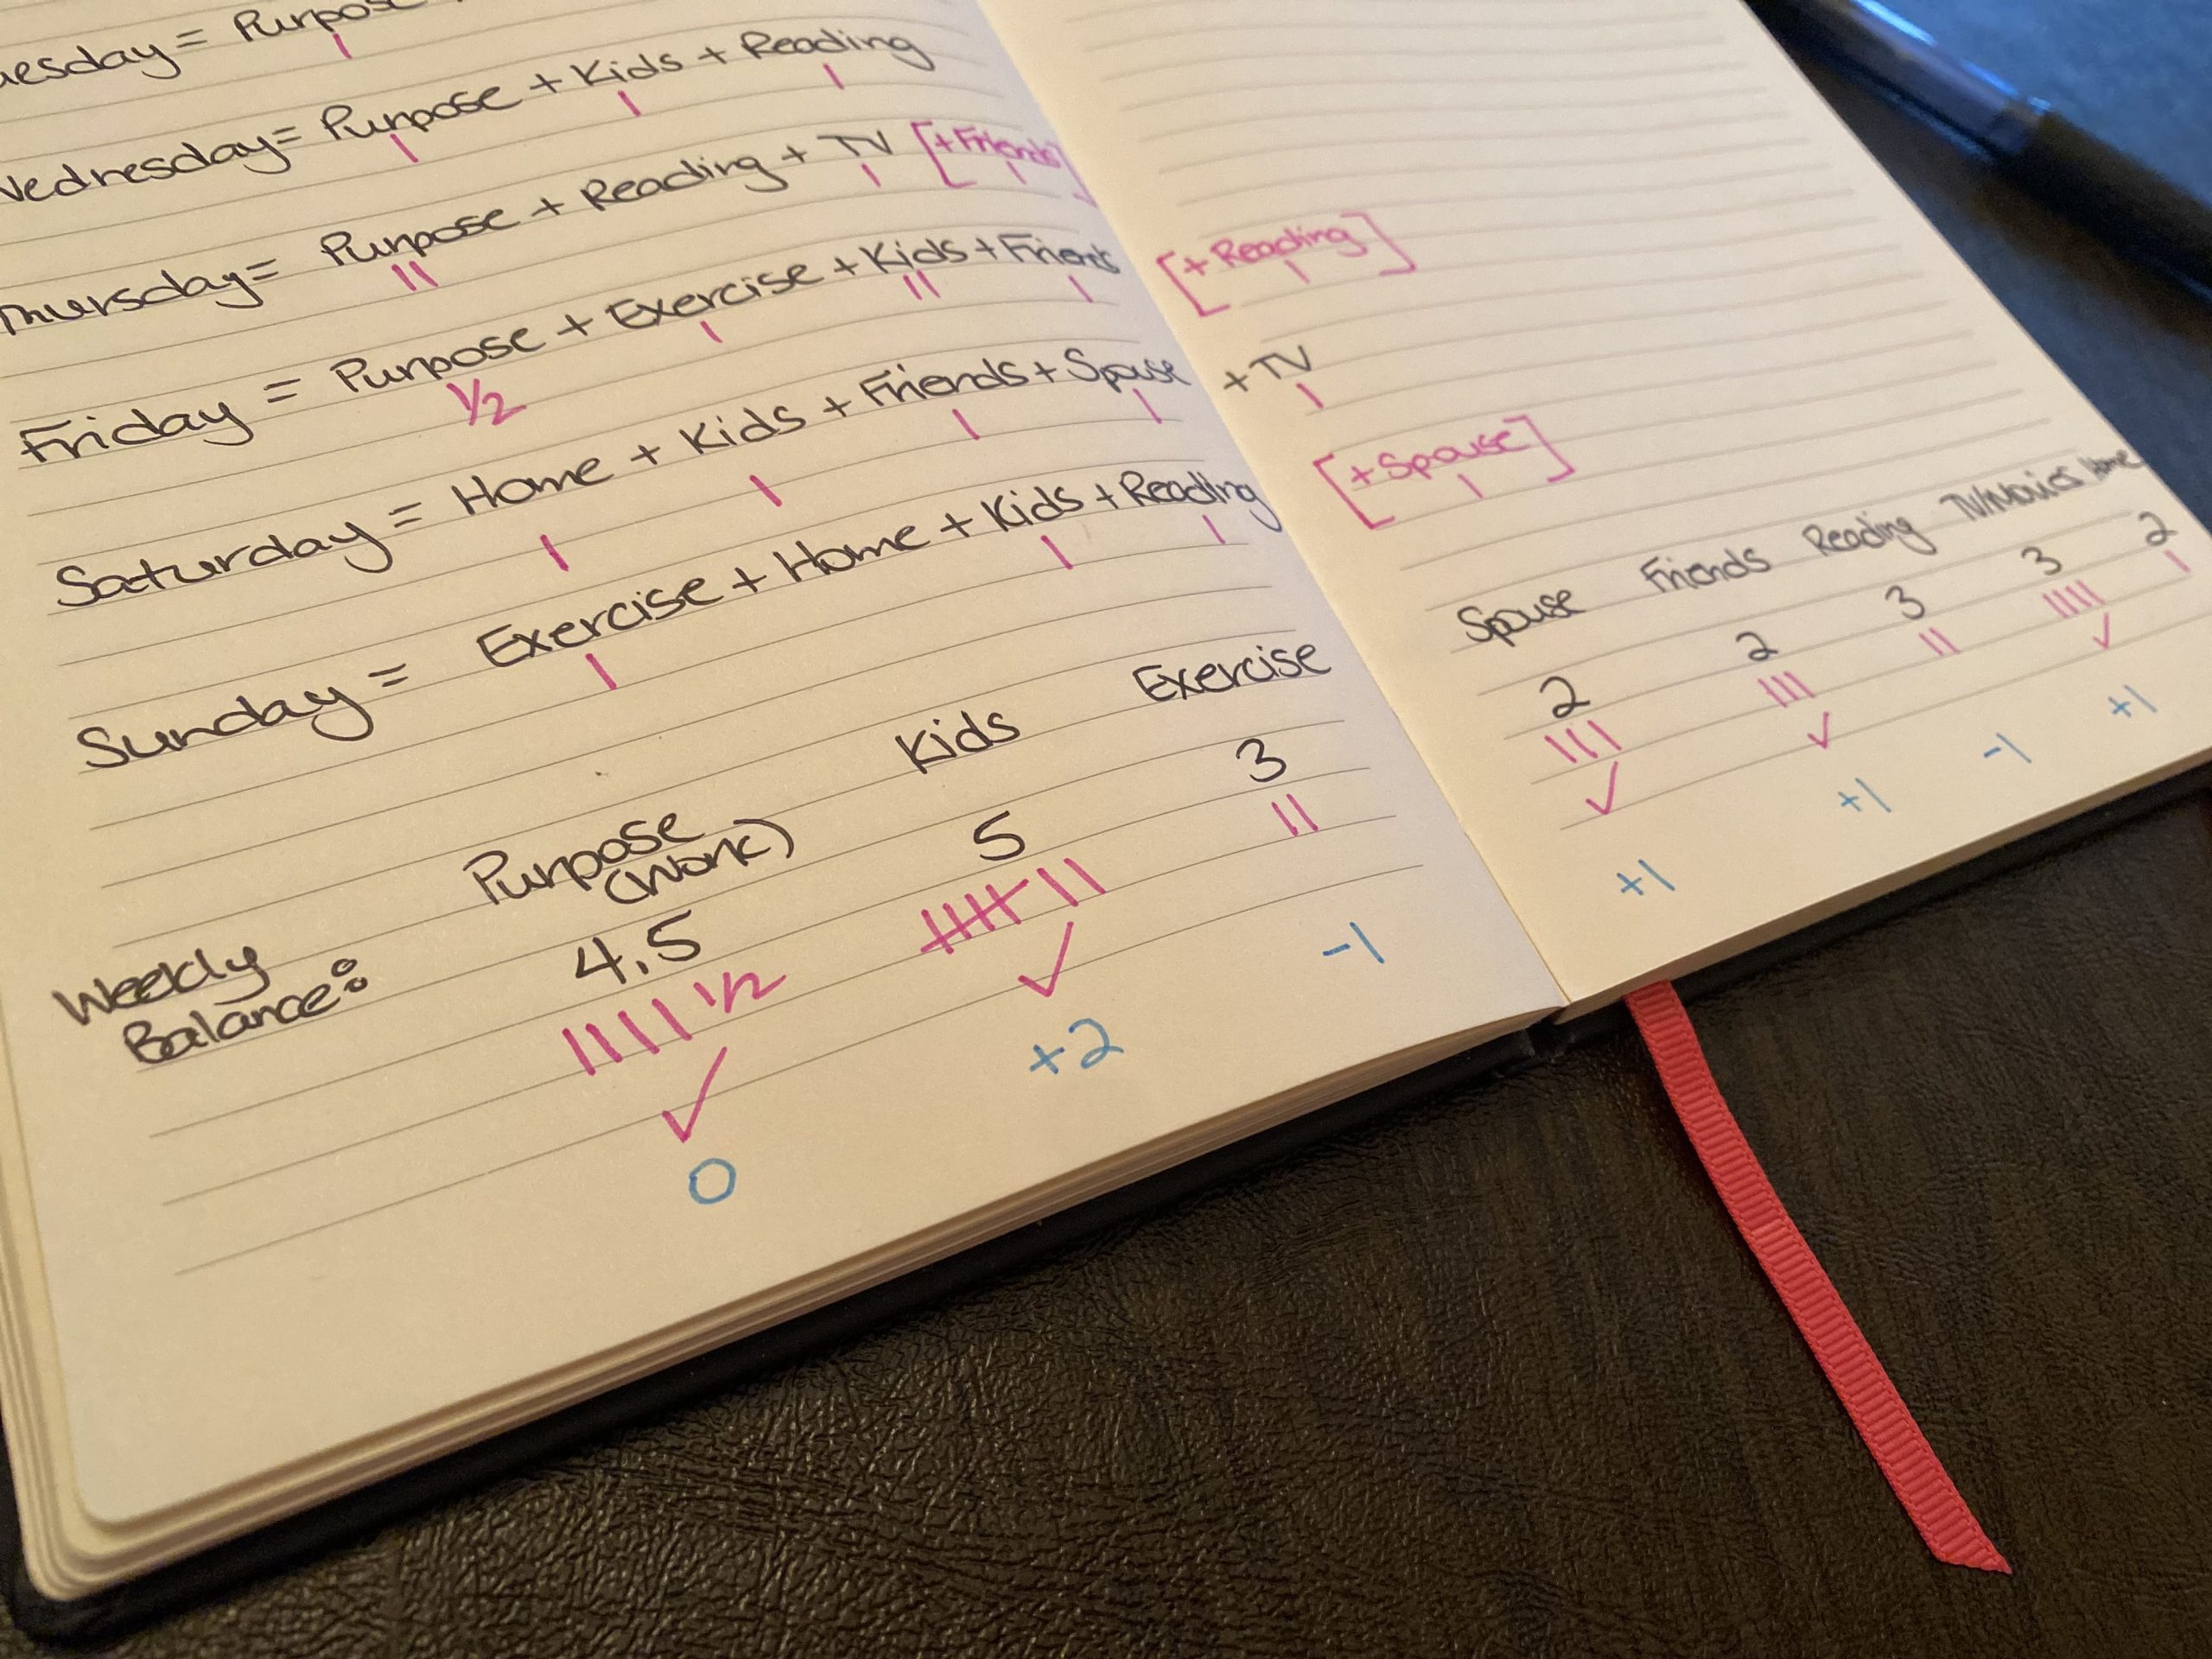 uesday = Purpose
Wednesday = Purpose + Kids + Reading
Thursday = Purpose + Reading + TV [+Friends]
Friday = Purpose + Exercise + Kids + Friends [+ Reading]
1/2
Saturday = Home + Kids + Friends + Spouse + TV
Sunday = Exercise + Home + Kids + Reading [+ Spouse]
Weekly Purpose Kids Exercise Spouse Friends Reading TV/Movies Home
Balance: (Work)
4.5 5 3 2 2 3 3 2
1/2
0 +2 -1 +1 +1 -1 +1